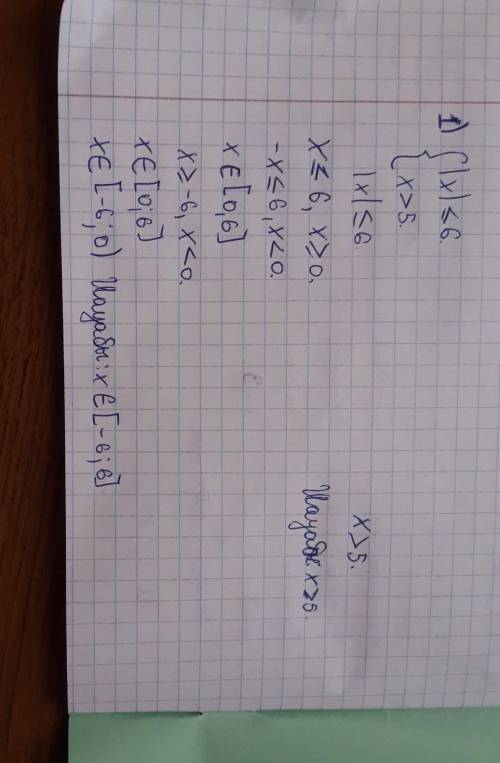 1) { |x| ≤ 6.
x > 5.
|x| ≤ 6.
x ≤ 6, x ≥ 0.
-x ≤ 6, x < 0.
x ∈ [0,6]
x ≥ -6, x < 0.
x ∈ [0;6]
x ∈ [-6;0) Жауабы: x ∈ [-6;6]
x > 5.
Жауабы: x > 5.